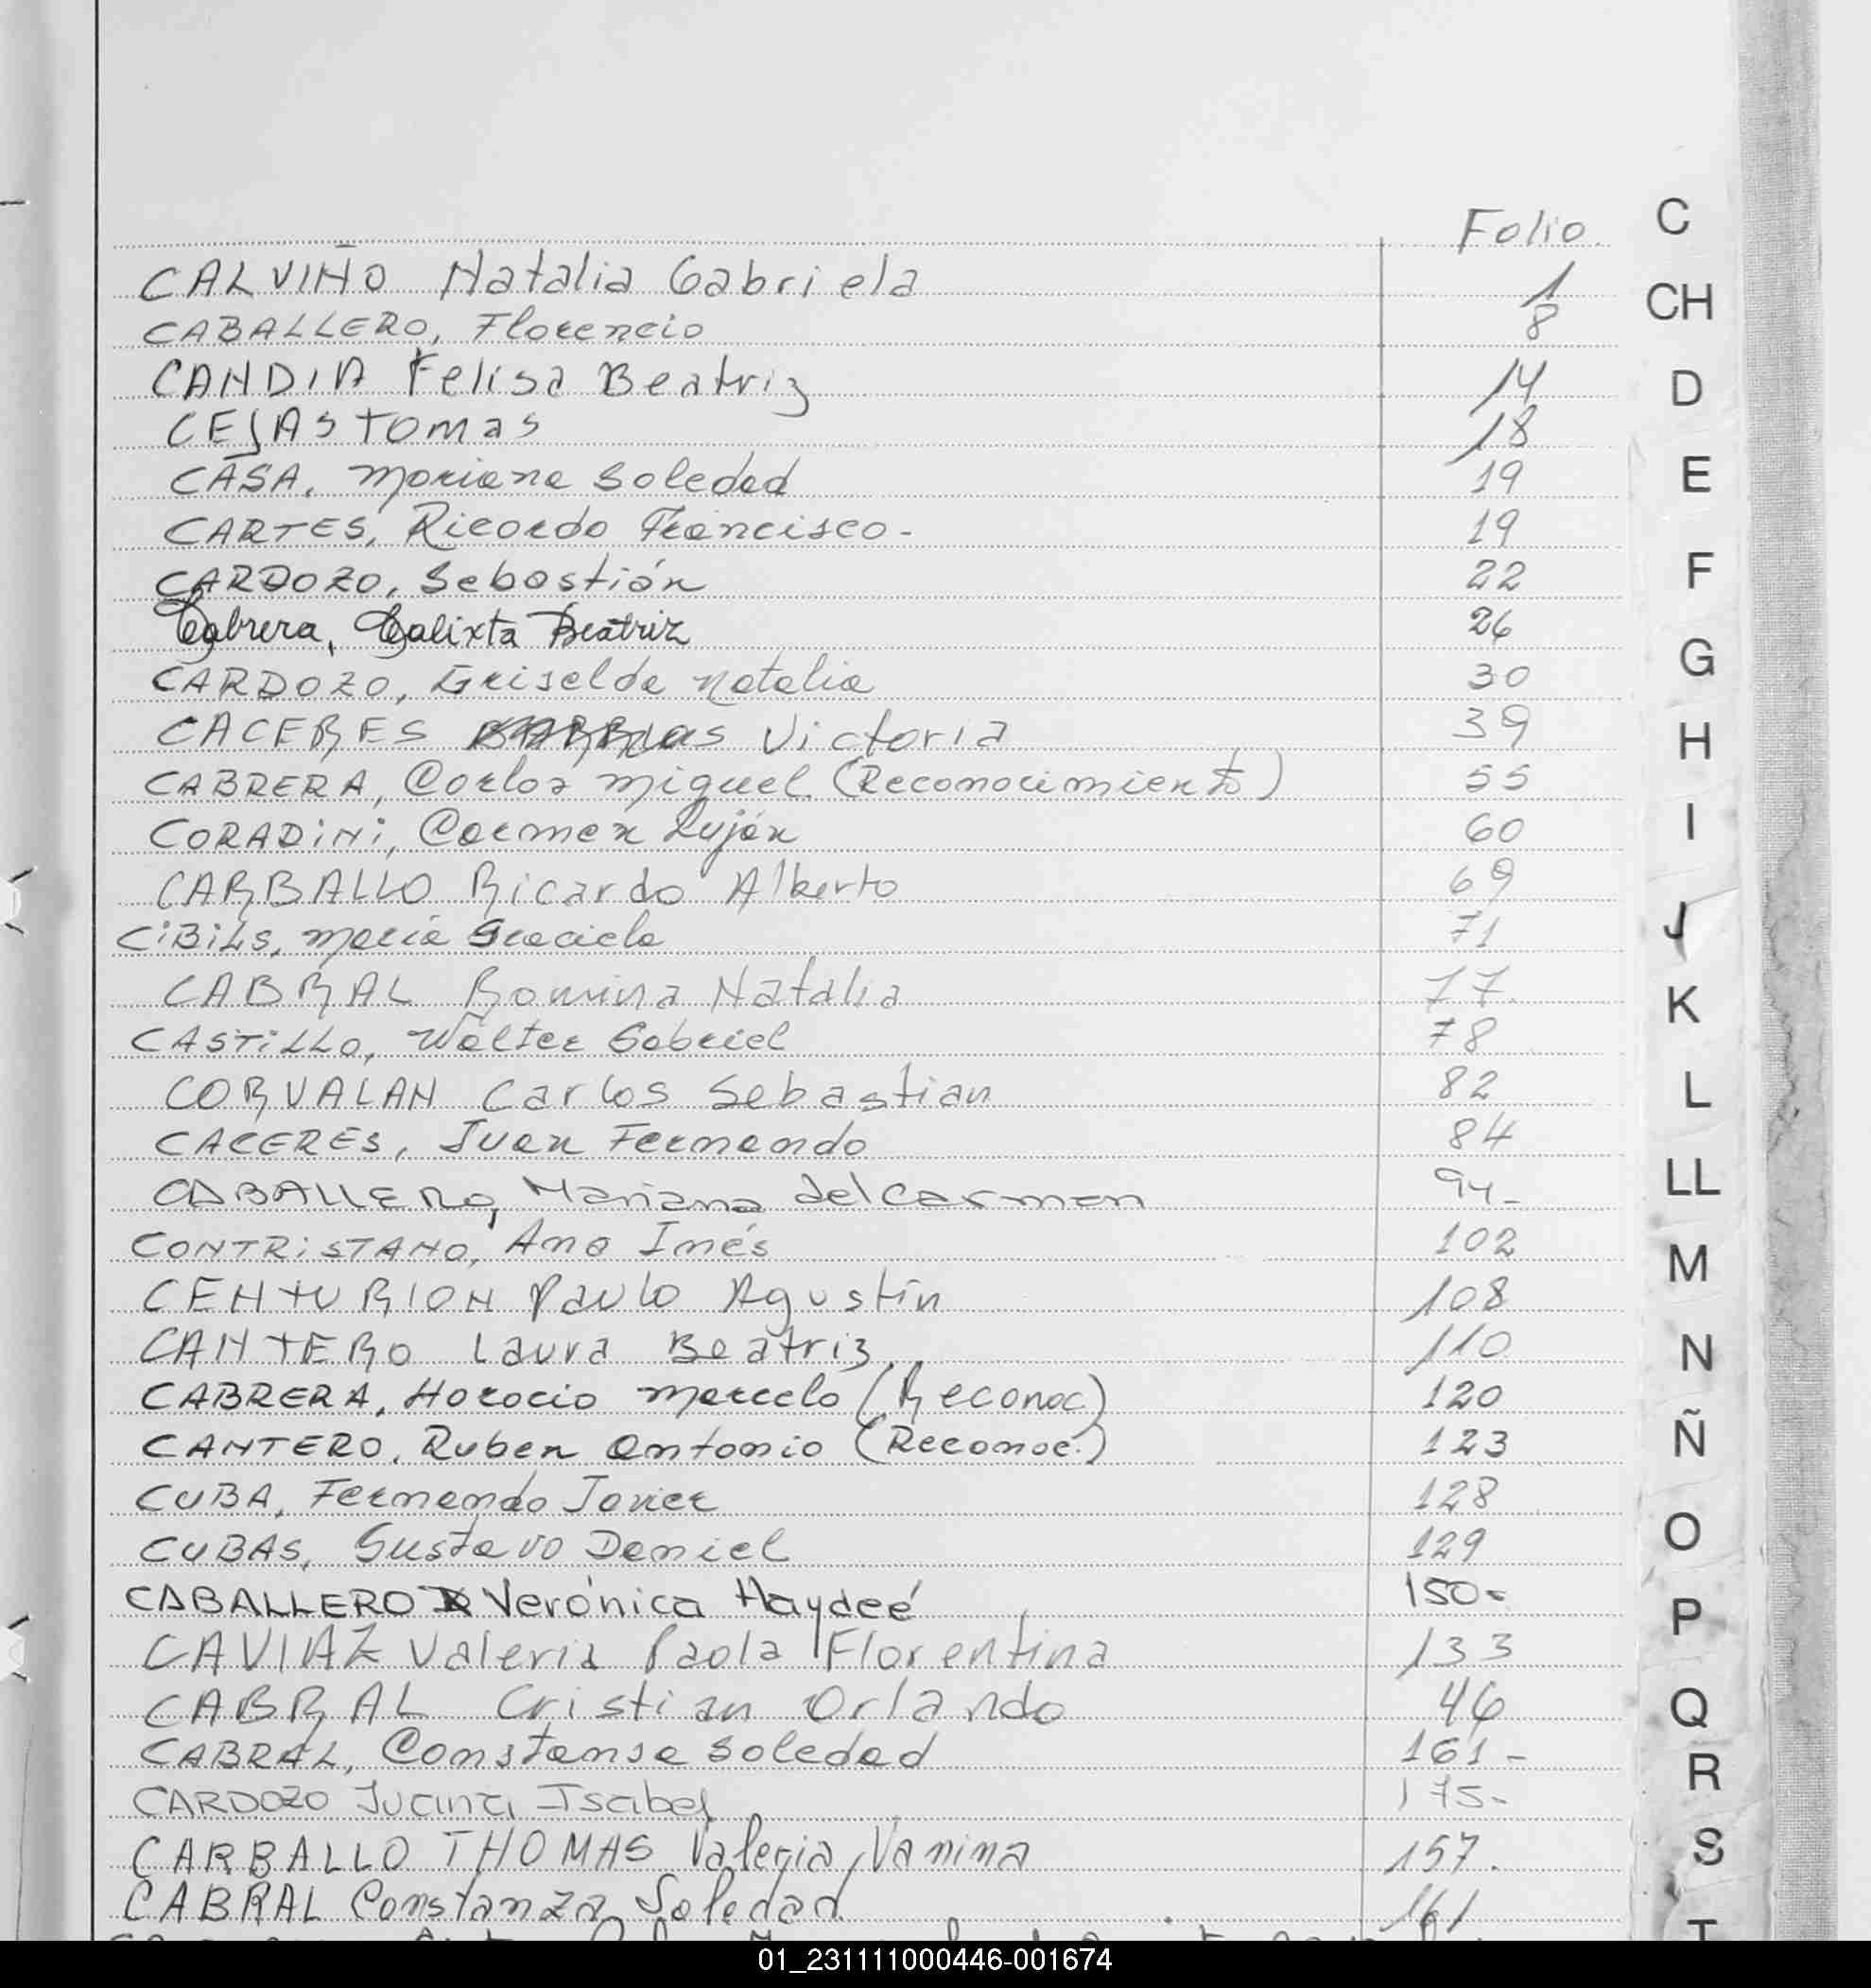 Folio
CALVIÑO Natalia Gabriela 1
CABALLERO, Florencio 8
CANDIA Felisa Beatriz 14
CEJAS Tomas 18
CASA, Mariana Soledad 19
CARTES, Ricardo Francisco - 19
CARDOZO, Sebastián 22
Cabrera, Calixta Beatriz 26
CARDOZO, Griselda Natalia 30
CACERES Victoria 39
CABRERA, Carlos Miguel (Reconocimiento) 55
CORADiNi, Carmen Luján 60
CARBALLO Ricardo Alberto 69
CiBiLS, María Graciela 71
CABRAL Romina Natalia 77
CASTiLLO, Walter Gabriel 78
CORVALAN Carlos Sebastian 82
CACERES, Juan Fernando 84
CABALLERO, Mariana del Carmen 94-
CONTRiSTANO, Ana Inés 102
CENTURION Paulo Agustín 108
CANTERO Laura Beatriz 110
CABRERA, Horacio Marcelo (Reconoc) 120
CANTERO, Ruben Antonio (Reconoc.) 123
CUBA, Fernando Javier 128
CUBAS, Gustavo Daniel 129
CABALLERO Verónica Haydeé 150-
CAVIAZ Valeria Paola Florentina 133
CABRAL Cristian Orlando 46
CABRAL, Constansa Soledad 161-
CARDOZO Juana Isabel 175-
CARBALLO THOMAS Valeria Vanina 157.
CABRAL Constanza Soledad 161
C
CH
D
E
F
G
H
I
J
K
L
LL
M
N
Ñ
O
P
Q
R
S
T
01_231111000446-001674